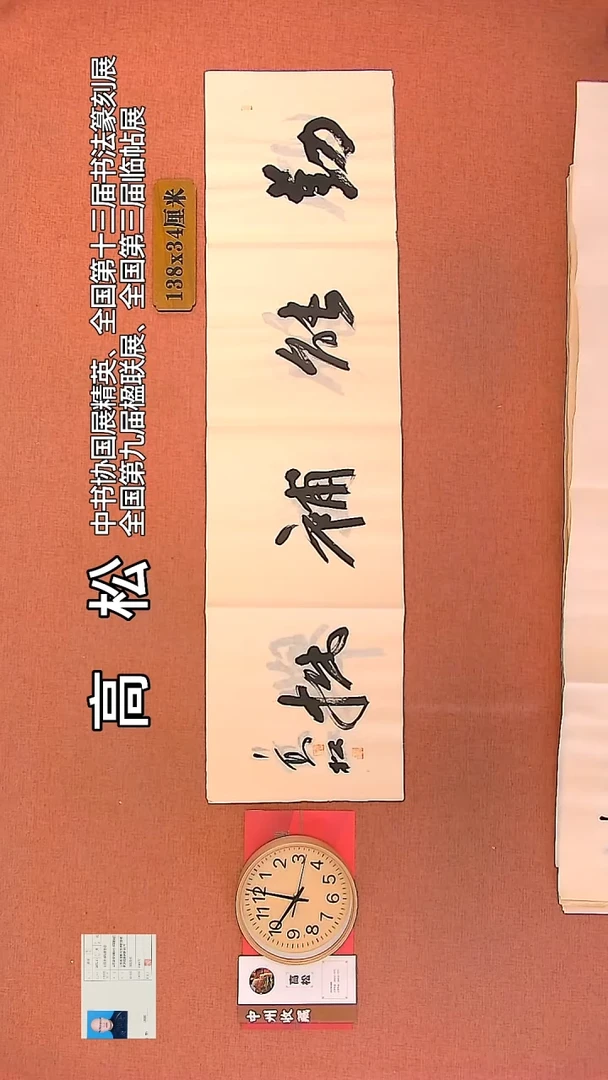 高 松
中书协国展精英、全国第十三届书法篆刻展
全国第九届楹联展、全国第三届临帖展
138x34厘米
勤能補拙
高松
12
1
2
3
4
5
6
7
8
9
10
11
高松
中州收藏